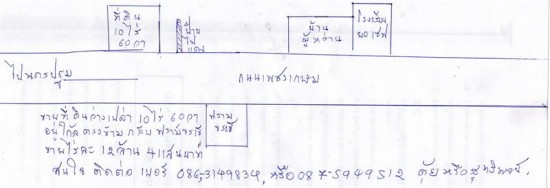 ที่ดิน
10ไร่
60วา
บ้าน
บ้าน
ผู้หว่าน
โรงเรียน
ยอเซฟ
ไปนครปฐม
ถนนเพชรเกษม
ขายที่ดินว่างเปล่า 10ไร่ 60วา
อยู่ใกล้ ตรงข้าม กับ ฟาร์มจรเข้
ขายไร่ละ 12ล้าน 4แสนบาท
สนใจ ติดต่อ เบอร์ 086-3149834, หรือ 087-5949512 ตุ้ย หรือ
ฟาร์ม
จรเข้